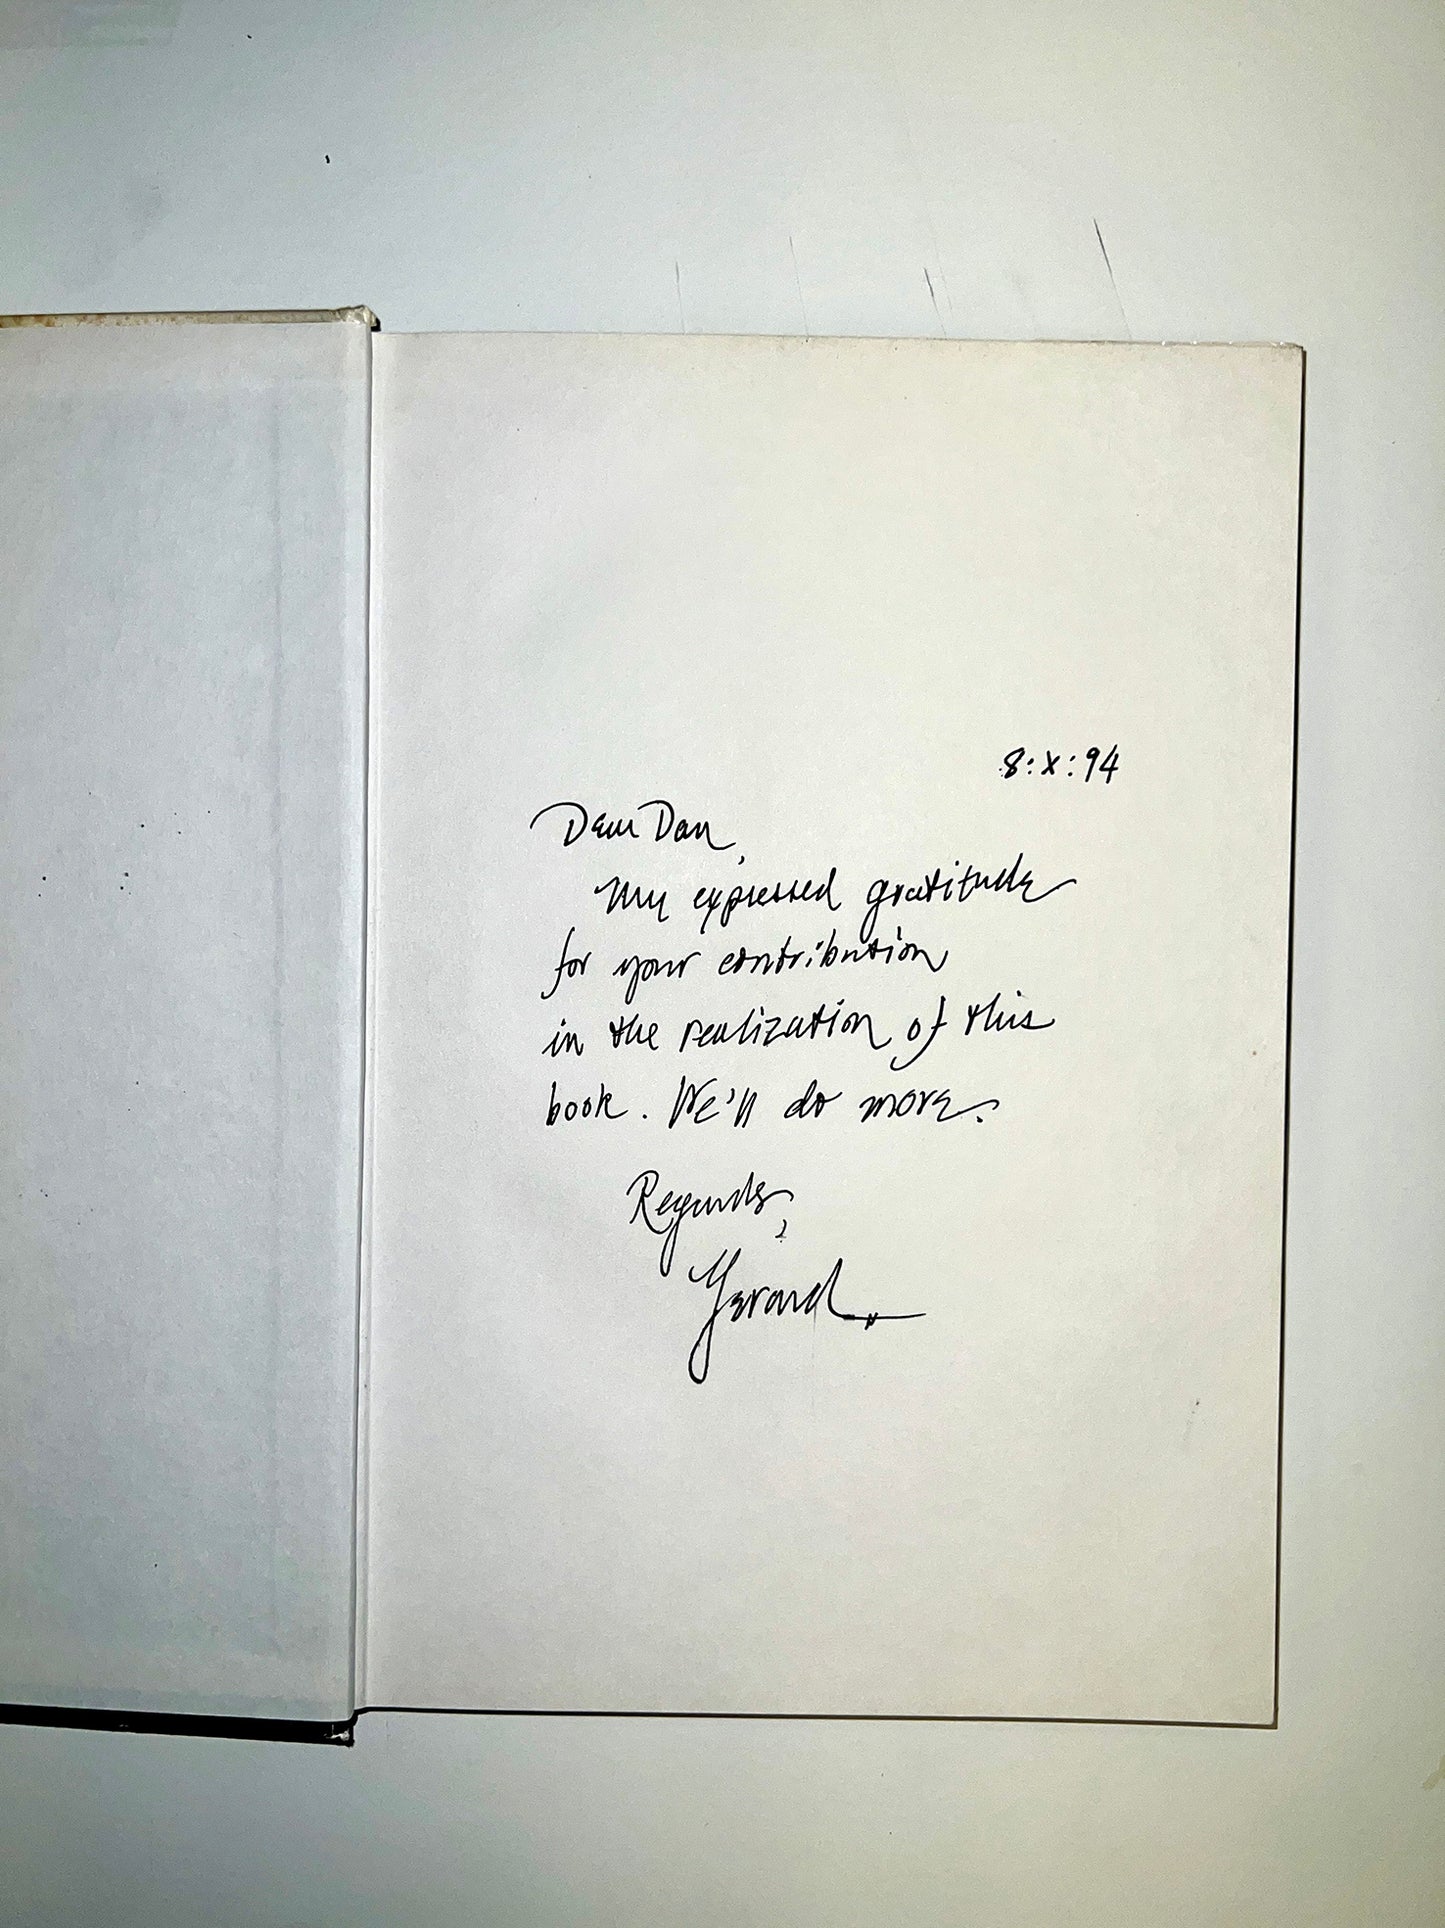 8:X:94
Dear Dan,
My expressed gratitude
for your contribution
in the realization of this
book. We'll do more.
Regards,
Gerard